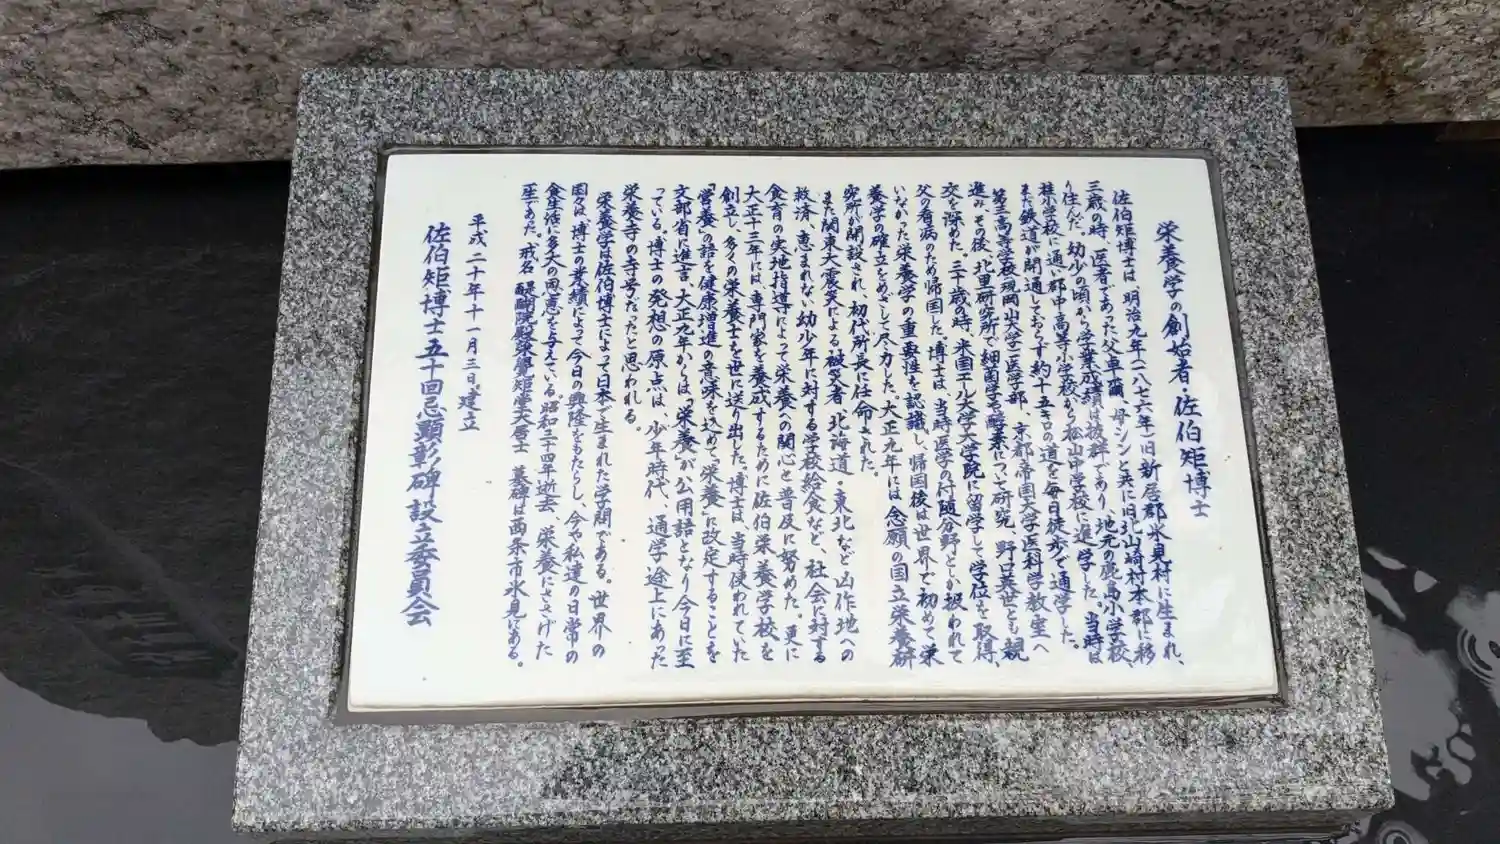 栄養学の創始者・佐伯矩博士
佐伯矩博士は、明治九年(一八七六年)旧新居郡氷見村に生まれ、
三歳の時、医者であった父車爾、母シンと共に旧北山崎村本郡に移
り住んだ。幼少の頃から学業成績は抜群であり、地元の鹿高小学校、
桂小学校に通い郡中高等小学校から松山中学校に進学した。当時は
まだ鉄道が開通しておらず約十五キロの道を毎日徒歩で通学した。
第三高等学校現岡山大学医学部、京都帝国大学医科学教室へ
進み、その後、北里研究所で細菌学や酵素について研究、野口英世とも親
交を深めた。三十歳の時、米国エール大学大学院に留学して学位を取得、
父の看病のため帰国した。博士は、当時医学の付随分野としか扱われて
いなかった栄養学の重要性を認識し、帰国後は世界で初めて栄
養学の確立をめざして尽力した。大正九年には念願の国立栄養研
究所が開設され、初代所長に任命された。
また関東大震災による被災者、北海道・東北など凶作地への
救済、恵まれない幼少年に対する学校給食など、社会に対する
食育の実地指導によって栄養の関心と普及に努めた。更に
大正十三年には、専門家を養成するために佐伯栄養学校を
創立し、多くの栄養士を世に送り出した。博士は、当時使われていた
「営養」の語を健康増進の意味を込めて、「栄養」に改定することを
文部省に進言、大正九年からは、「栄養」が公用語となり今日に至
っている。博士の発想の原点は、少年時代、通学途上にあった
栄養寺の寺号だったと思われる。
栄養学は佐伯博士によって日本で生まれた学問である。世界の
国々は、博士の業績によって今日の興隆をもたらし、今や私達の日常の
食生活に多大の恩恵を与えている。昭和三十四年逝去、栄養にささげた
一生であった。戒名 醍醐院殿栄養矩堂大居士 墓碑は西条市氷見にある。
平成二十年十一月三日建立
佐伯矩博士五十回忌顕彰碑設立委員会